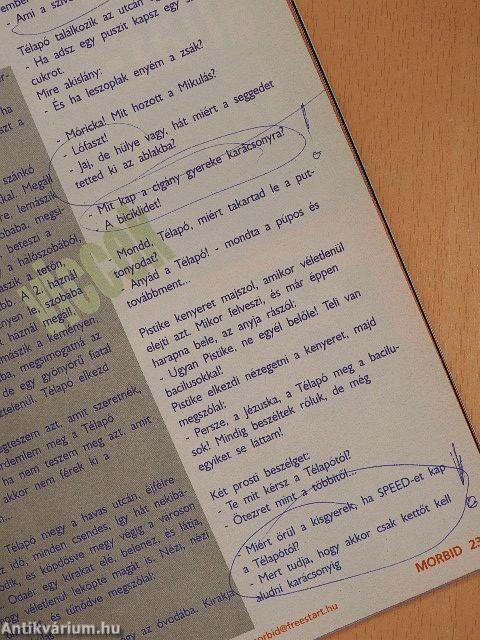 ember
- Ami a szíve
Télapó találkozik az utcán
- Ha adsz egy puszit kapsz egy
cukrot.
Mire akislány:
- És ha leszoplak enyém a zsák?
- Móricka! Mit hozott a Mikulás?
- Lófaszt!
- Jaj, de hülye vagy, hát miért a seggedet
tetted ki az ablakba?
- Mit kap a cigány gyereke karácsonyra?
A biciklidet!
- Mondd, Télapó, miért takartad le a put-
tonyodat?
Anyád a Télapó! - mondta a púpos és
továbbment...
Pistike kenyeret majszol, amikor véletlenül
elejti azt. Mikor felveszi, és már éppen
harapna bele, az anyja rászól:
- Ugyan Pistike, ne egyél belőle! Teli van
bacilusokkal!
Pistike elkezdi nézegetni a kenyeret, majd
megszólal:
- Persze, a Jézuska, a Télapó meg a bacilu-
sok! Mindig beszéltek róluk, de még
egyiket se láttam!
Két prosti beszélget:
- Te mit kérsz a Télapótól?
- Ötezret mint a többitől...
- Miért örül a kisgyerek, ha SPEED-et kap
a Télapótól?
- Mert tudja, hogy akkor csak kettőt kell
aludni karácsonyig
MORBID 23
morbid@freestart.hu
viccek
ha
szánkó
kkal. Megáll
re, lemászik
obába, megsi-
beteszi a
a hálószobából,
ászik a tetőn,
bb. A 2. háznál
nyen le, szobába
háznál megáll,
mászik a kéményen,
ba, megsimogatná az
de egy gyönyörű fiatal
ztelenül. Télapó elkezd
egteszem azt, amit szeretnék,
rdemlem meg a Télapó
ha nem teszem meg azt, amit
akkor nem férek ki a
Télapó megy a havas utcán, éjfélre
az idő, minden csendes, így hát nekibá-
odik, és köpdösve megy végig a városon
Odaér egy kirakat elé, belenéz, és látja,
hogy véletlenül leköpte magát is. Nézi, nézi
és tűnődve megszólal:
az óvodába. Kirakja
Antikvárium.hu